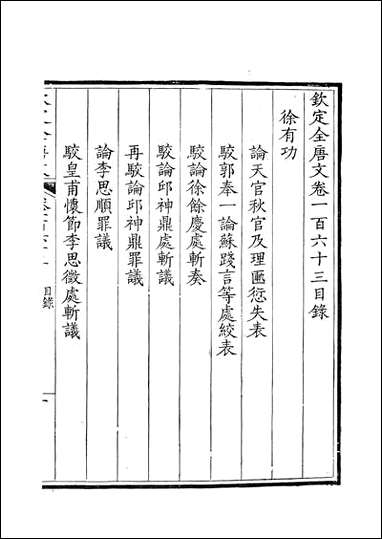 欽定全唐文卷一百六十三目錄
徐有功
論天官秋官及理匭愆失表
駮郭奉一論蘇踐言等處絞表
駮論徐餘慶處斬奏
駮論邱神鼎處斬議
再駮論邱神鼎罪議
論李思順罪議
駮皇甫懷節李思徵處斬議
目錄
一